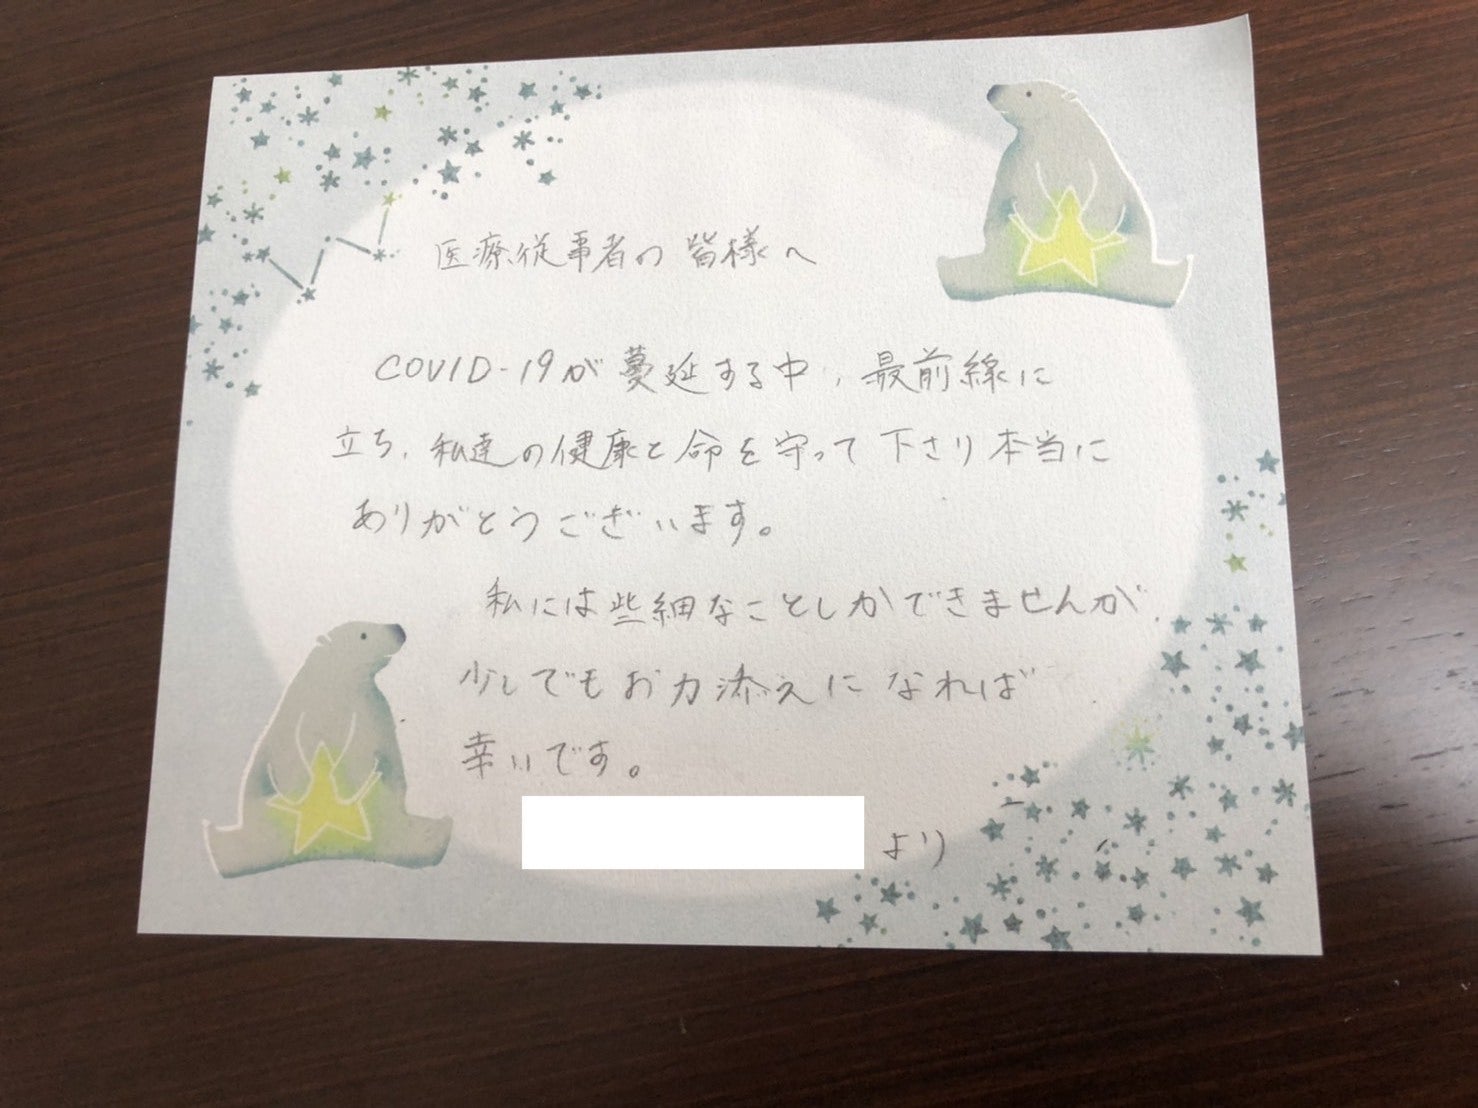 医療従事者の皆様へ
COVID-19が蔓延する中、最前線に
立ち、私達の健康と命を守って下さり本当に
ありがとうございます。
私には些細なことしかできませんが
少しでもお力添えになれば
幸いです。
より